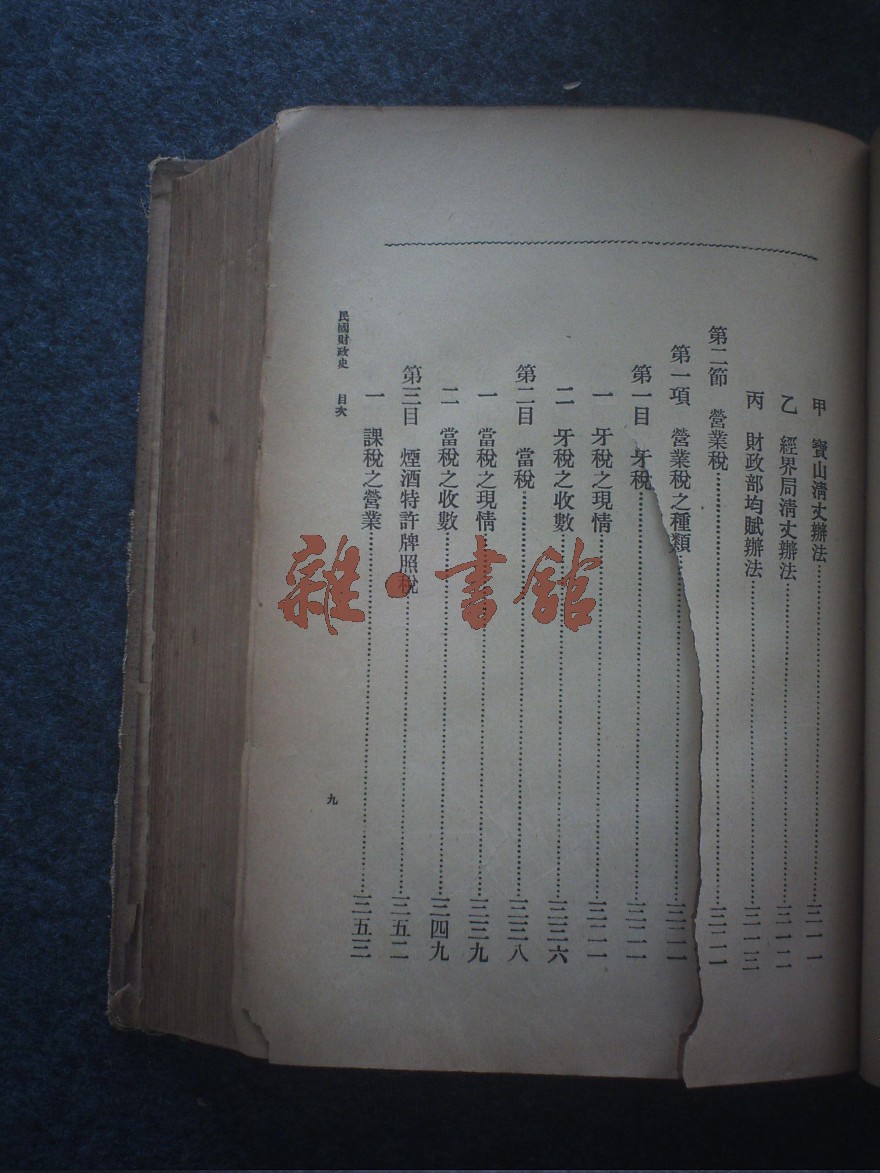 甲 寶山淸丈辦法……三一一
乙 經界局淸丈辦法……三一二
丙 財政部均賦辦法……三一三
第二節 營業稅……三二一
第一項 營業稅之種類……三二一
第一目 牙稅……三二一
一 牙稅之現情……三二一
二 牙稅之收數……三三六
第二目 當稅……三三八
一 當稅之現情……三三九
二 當稅之收數……三四九
第三目 煙酒特許牌照稅……三五二
一 課稅之營業……三五三
民國財政史 目次
九
雜·書館